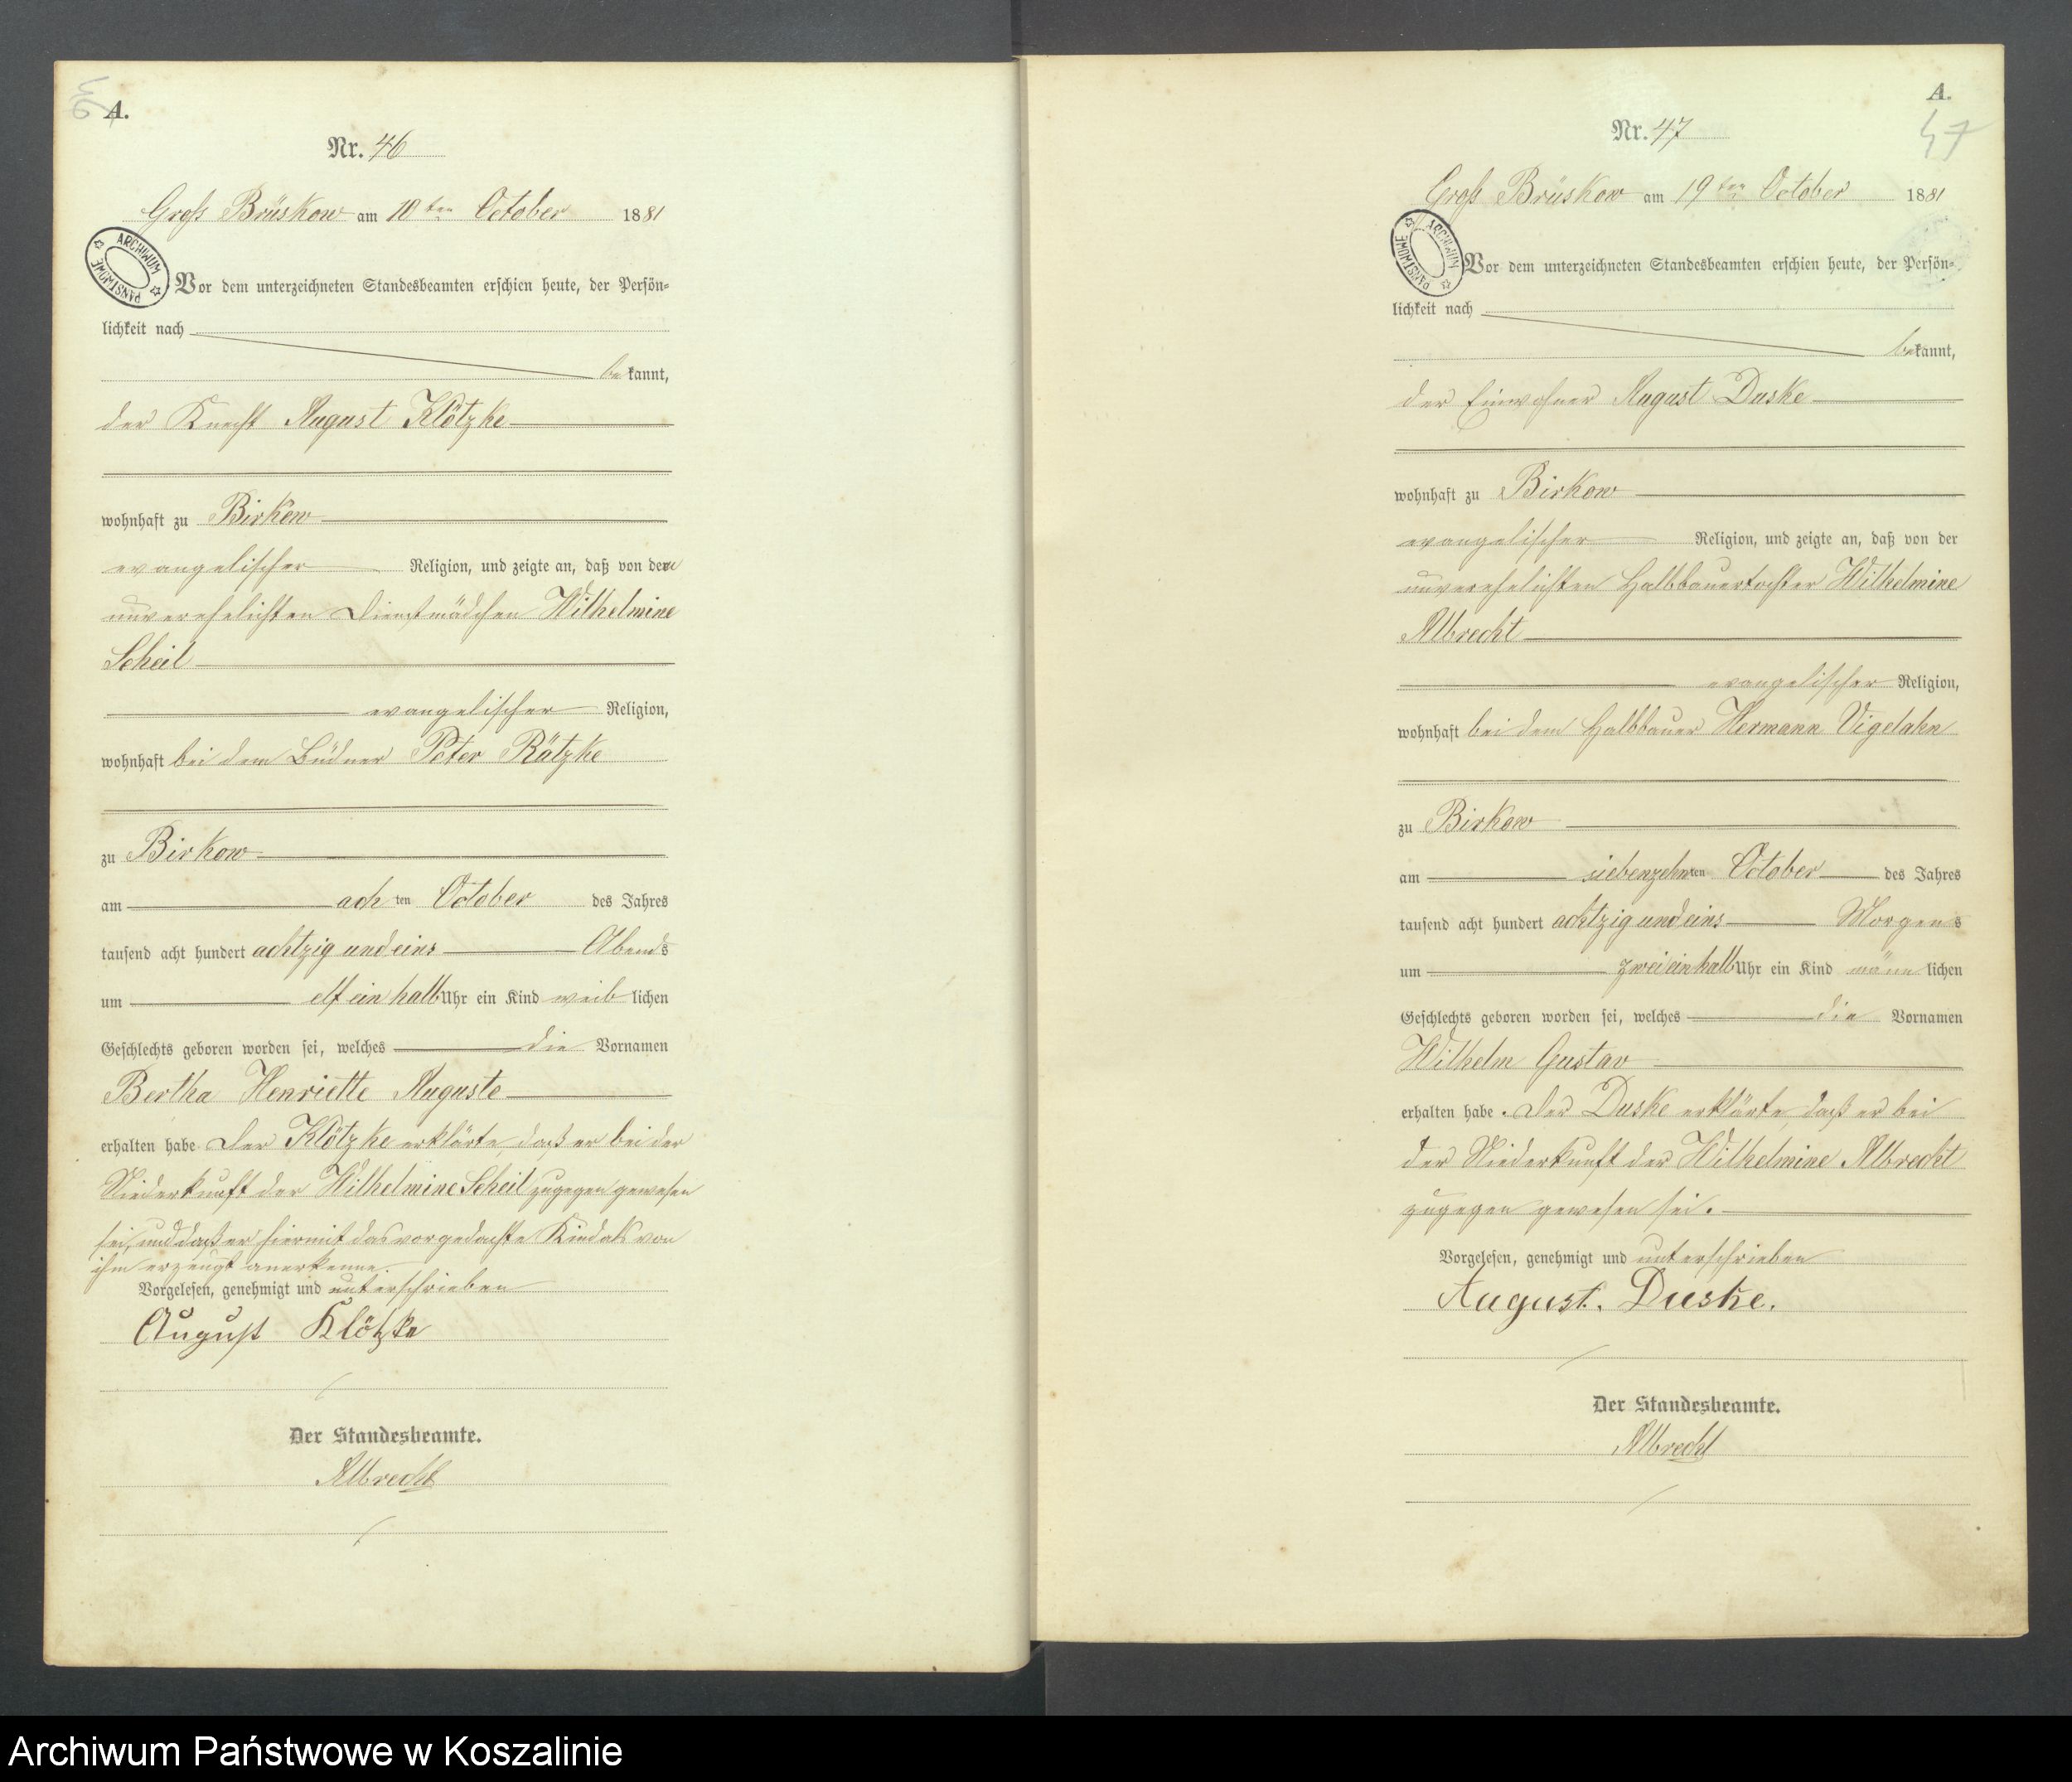 A.
Nr. 46
Groß Brüskow am 10ten October 1881
ARCHIWUM PAŃSTWOWE
Vor dem unterzeichneten Standesbeamten erschien heute, der Persön-
lichkeit nach
bekannt,
der Knecht August Klötzke
wohnhaft zu Birkow
evangelischer Religion, und zeigte an, daß von dem
unverehelichten Dienstmädchen Wilhelmine
Scheil
evangelischer Religion,
wohnhaft bei dem Büdner Peter Rätzke
zu Birkow
am achten October des Jahres
tausend acht hundert achtzig und eins Abends
um elf ein halb Uhr ein Kind weiblichen
Geschlechts geboren worden sei, welches die Vornamen
Bertha Henriette Auguste
erhalten habe Der Klötzke erklärte, daß er bei der
Niederkunft der Wilhelmine Scheil zugegen gewesen
sei, und daß er hiermit das vorgedachte Kind als von
ihm erzeugt anerkenne.
Vorgelesen, genehmigt und unterschrieben
August Klötzke
Der Standesbeamte.
Albrecht
A.
47
Nr. 47
Groß Brüskow am 19ten October 1881
ARCHIWUM PAŃSTWOWE
Vor dem unterzeichneten Standesbeamten erschien heute, der Persön-
lichkeit nach
bekannt,
der Einwohner August Duske
wohnhaft zu Birkow
evangelischer Religion, und zeigte an, daß von der
unverehelichten Halbbauertochter Wilhelmine
Albrecht
evangelischer Religion,
wohnhaft bei dem Halbbauer Hermann Vigelahn
zu Birkow
am siebenzehnten October des Jahres
tausend acht hundert achtzig und eins Morgens
um zwei ein halb Uhr ein Kind männlichen
Geschlechts geboren worden sei, welches die Vornamen
Wilhelm Gustav
erhalten habe. Der Duske erklärte, daß er bei
der Niederkunft der Wilhelmine Albrecht
zugegen gewesen sei.
Vorgelesen, genehmigt und unterschrieben
August. Duske.
Der Standesbeamte.
Albrecht
Archiwum Państwowe w Koszalinie